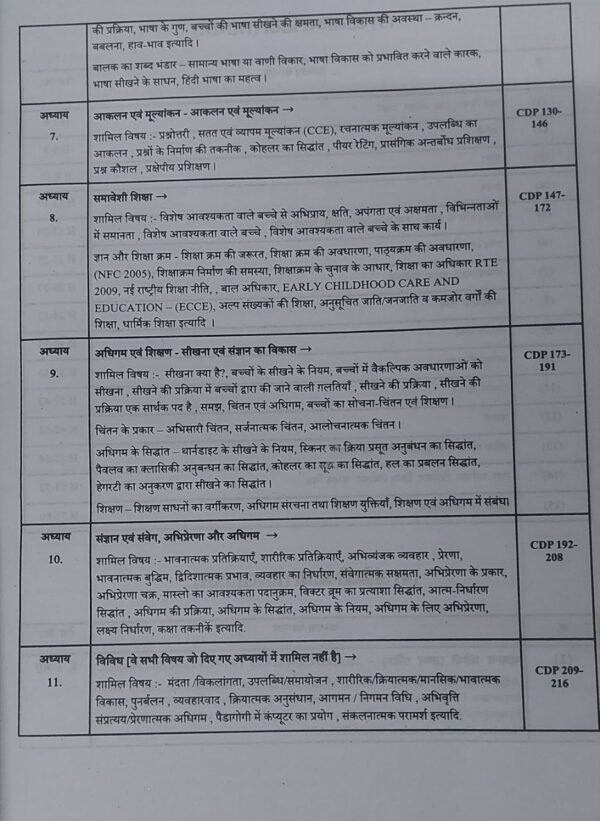 की प्रक्रिया, भाषा के गुण, बच्चों की भाषा सीखने की क्षमता, भाषा विकास की अवस्था – क्रन्दन,
बबलना, हाव-भाव इत्यादि ।
बालक का शब्द भंडार – सामान्य भाषा या वाणी विकार, भाषा विकास को प्रभावित करने वाले कारक,
भाषा सीखने के साधन, हिंदी भाषा का महत्व ।
अध्याय
7.
आकलन एवं मूल्यांकन - आकलन एवं मूल्यांकन →
शामिल विषय :- प्रश्नोत्तरी , सतत एवं व्यापम मूल्यांकन (CCE), रचनात्मक मूल्यांकन , उपलब्धि का
आकलन , प्रश्नों के निर्माण की तकनीक , कोहलर का सिद्धांत , पीयर रेटिंग, प्रासंगिक अन्तर्बोध प्रशिक्षण ,
प्रश्न कौशल , प्रक्षेपीय प्रशिक्षण ।
CDP 130-
146
अध्याय
8.
समावेशी शिक्षा →
शामिल विषय :- विशेष आवश्यकता वाले बच्चे से अभिप्राय, क्षति, अपंगता एवं अक्षमता , विभिन्नताओं
में समानता , विशेष आवश्यकता वाले बच्चे , विशेष आवश्यकता वाले बच्चे के साथ कार्य ।
ज्ञान और शिक्षा क्रम - शिक्षा क्रम की जरूरत, शिक्षा क्रम की अवधारणा, पाठ्यक्रम की अवधारणा,
(NFC 2005), शिक्षाक्रम निर्माण की समस्या, शिक्षाक्रम के चुनाव के आधार, शिक्षा का अधिकार RTE
2009, नई राष्ट्रीय शिक्षा नीति, , बाल अधिकार, EARLY CHILDHOOD CARE AND
EDUCATION – (ECCE), अल्प संख्यकों की शिक्षा, अनुसूचित जाति/जनजाति व कमजोर वर्गों की
शिक्षा, धार्मिक शिक्षा इत्यादि ।
CDP 147-
172
अध्याय
9.
अधिगम एवं शिक्षण - सीखना एवं संज्ञान का विकास →
शामिल विषय :- सीखना क्या है?, बच्चों के सीखने के नियम, बच्चों में वैकल्पिक अवधारणाओं को
सीखना , सीखने की प्रक्रिया में बच्चों द्वारा की जाने वाली ग़लतियाँ , सीखने की प्रक्रिया , सीखने की
प्रक्रिया एक सार्थक पद है , समझ, चिंतन एवं अधिगम, बच्चों का सोचना-चिंतन एवं शिक्षण ।
चिंतन के प्रकार – अभिसारी चिंतन, सर्जनात्मक चिंतन, आलोचनात्मक चिंतन ।
अधिगम के सिद्धांत – थार्नडाइट के सीखने के नियम, स्किनर का क्रिया प्रसूत अनुबंधन का सिद्धांत,
पैवलव का क्लासिकी अनुबन्धन का सिद्धांत, कोहलर का सूझ का सिद्धांत, हल का प्रबलन सिद्धांत,
हेगरटी का अनुकरण द्वारा सीखने का सिद्धांत ।
शिक्षण – शिक्षण साधनों का वर्गीकरण, अधिगम संरचना तथा शिक्षण युक्तियाँ, शिक्षण एवं अधिगम में संबंध।
CDP 173-
191
अध्याय
10.
संज्ञान एवं संवेग, अभिप्रेरणा और अधिगम →
शामिल विषय :- भावनात्मक प्रतिक्रियाएँ, शारीरिक प्रतिक्रियाएँ, अभिव्यंजक व्यवहार , प्रेरणा,
भावनात्मक बुद्धिम, द्विदिशात्मक प्रभाव, व्यवहार का निर्धारण, संवेगात्मक सक्षमता, अभिप्रेरणा के प्रकार,
अभिप्रेरणा चक्र, मास्लो का आवश्यकता पदानुक्रम, विक्टर व्रूम का प्रत्याशा सिद्धांत, आत्म-निर्धारण
सिद्धांत , अधिगम की प्रक्रिया, अधिगम के सिद्धांत, अधिगम के नियम, अधिगम के लिए अभिप्रेरणा,
लक्ष्य निर्धारण, कक्षा तकनीकें इत्यादि.
CDP 192-
208
अध्याय
11.
विविध [वे सभी विषय जो दिए गए अध्यायों में शामिल नहीं है] →
शामिल विषय :- मंदता /विकलांगता, उपलब्धि/समायोजन , शारीरिक/क्रियात्मक/मानसिक/भावात्मक
विकास, पुनर्बलन , व्यवहारवाद , क्रियात्मक अनुसंधान, आगमन / निगमन विधि , अभिवृत्ति
संप्रत्यय/प्रेरणात्मक अधिगम , पैडागोगी में कंप्यूटर का प्रयोग , संकलनात्मक परामर्श इत्यादि.
CDP 209-
216